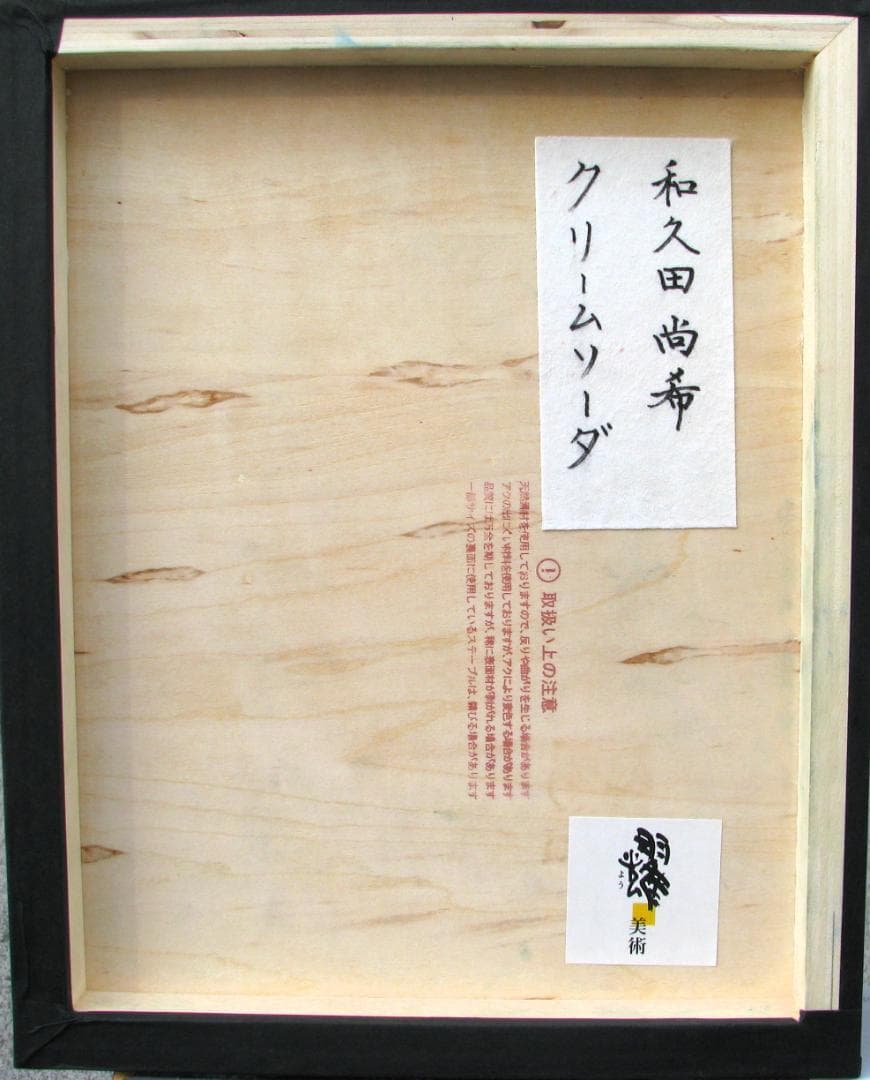 和久田尚希
クリームソーダ
取扱い上の注意
天然素材を使用しておりますので、反りや曲がりを生じる場合があります
アクの出にくい材料を使用しておりますが、アクにより変色する場合があります
品質には万全を期しておりますが、稀に表面材が剥がれる場合があります
一部サイズの裏面に使用しているステープルは、錆びる場合があります
耀
よう
美術